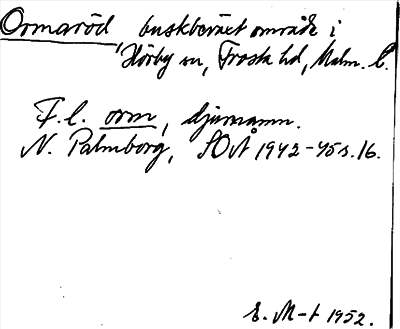 Ormaröd, buskbeväxt område i
Hörby sn, Frosta hd, Malm. l.
F. l. orm, djurnamn.
N. Palmborg, SOÅ 1942-45 s. 16.
E. M-t 1952.